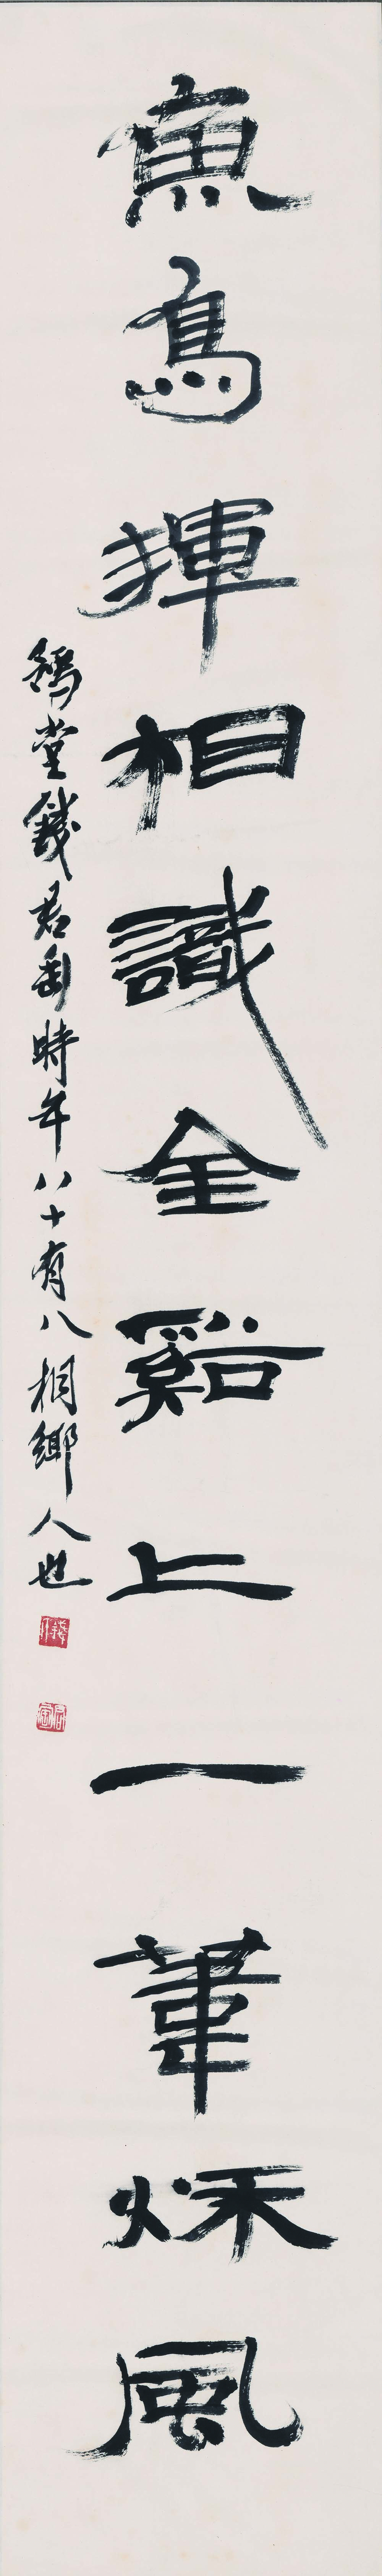 魚鳥揮相識全谿上一葦秌風
豫堂錢君匋時年八十有八桐鄉人也